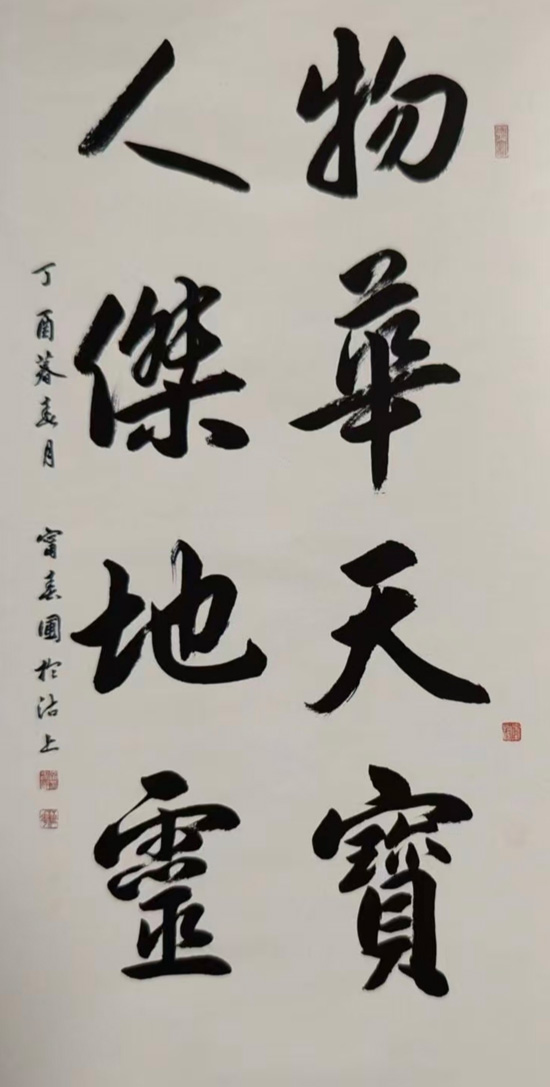 物華天寶
人傑地靈
丁酉暮春月 甯春圃於沽上